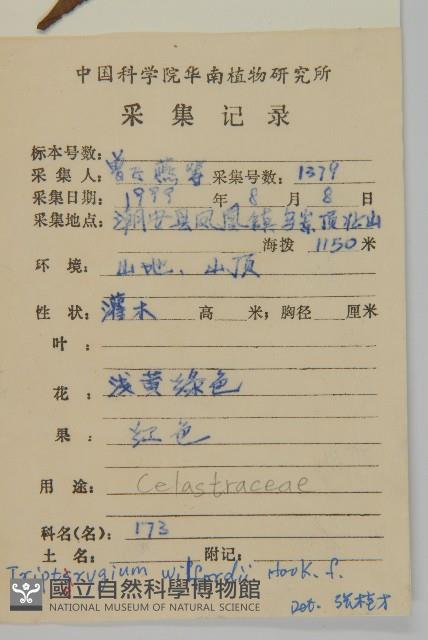 中国科学院华南植物研究所
采集记录
标本号数:
采集人: 曾云燕等 采集号数: 1379
采集日期: 1999 年 8 月 8 日
采集地点: 潮安县凤凰镇乌岽顶 山
海拨 1150 米
环境: 山地、山顶
性状: 灌木 高 米; 胸径 厘米
叶:
花: 浅黄绿色
果: 红色
用途: Celastraceae
科名(名): 173
土名: 附记:
Tripterygium wilfordii Hook. f.
Det. 张桂才
國立自然科學博物館
NATIONAL MUSEUM OF NATURAL SCIENCE